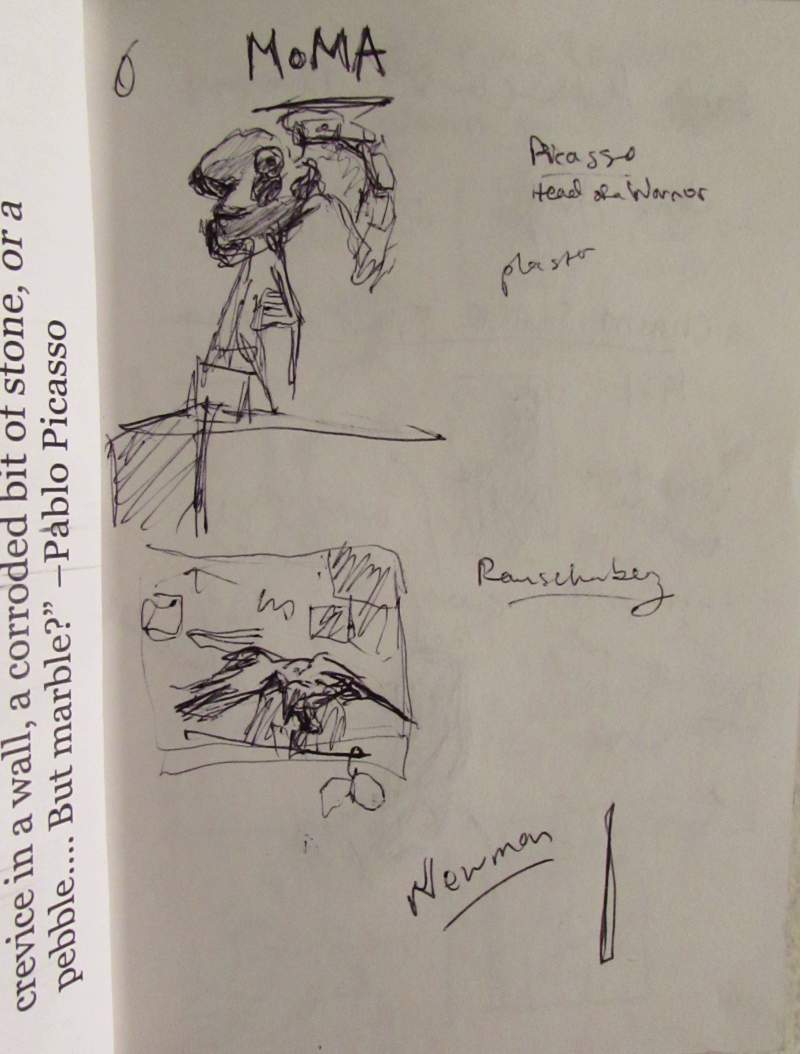 crevice in a wall, a corroded bit of stone, or a
pebble.... But marble?” –Pablo Picasso
6
MoMA
Picasso
Head of a Warrior
plaster
Rauschenberg
Newman